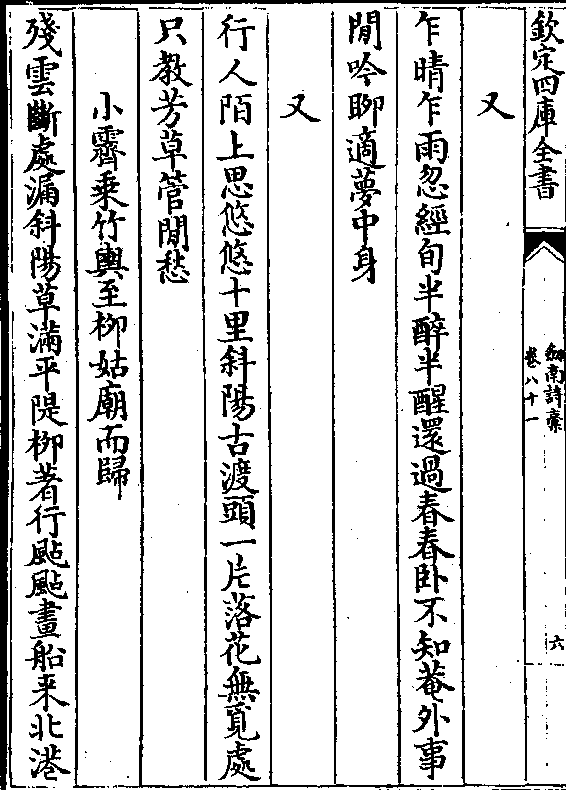 欽定四庫全書
劍南詩稾
卷八十一
六
又
乍晴乍雨忽經旬半醉半醒還過春春卧不知菴外事
閒吟聊適夢中身
又
行人陌上思悠悠十里斜陽古渡頭一片落花無覓處
只教芳草管閒愁
小霽乗竹輿至柳姑廟而歸
殘雲斷處漏斜陽草滿平隄柳著行颭颭畫船来北港